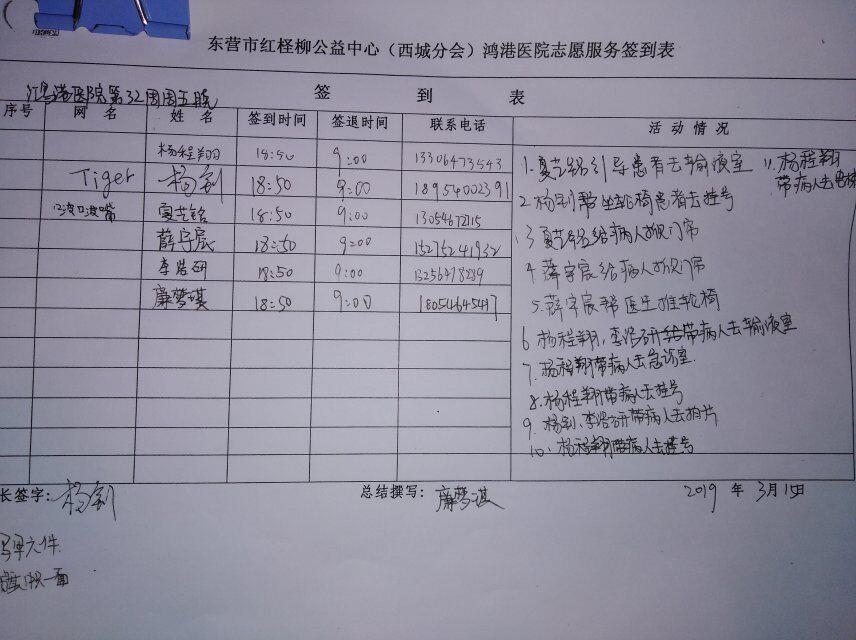 东营市红柽柳公益中心（西城分会）鸿港医院志愿服务签到表
鸿港医院第32周周五晚
签 到 表
序号 网 名 姓 名 签到时间 签退时间 联系电话 活 动 情 况
杨程翔 18:50 9:00 13306473543
Tiger 杨剑 18:50 9:00 18954002391
夏芝铭 18:50 9:00 13054672115
薛宇宸 18:50 9:00 15275241932
李浩研 18:50 9:00
廉梦琪 18:50 9:00 18054645417
1.夏芝铭引导患者去输液室
2.杨剑帮坐轮椅患者去挂号
3.夏芝铭给病人掀门帘
4.薛宇宸给病人掀门帘
5.薛宇宸帮医生推轮椅
6.杨程翔,李浩研带病人去输液室
7.杨程翔带病人去急诊室.
8.杨程翔带病人去挂号
9.杨剑、李浩研带病人去拍片
10、杨程翔带病人去挂号
11.杨程翔
带病人去电梯
长签字: 杨剑 总结撰写: 廉梦琪 2019 年 3月15日